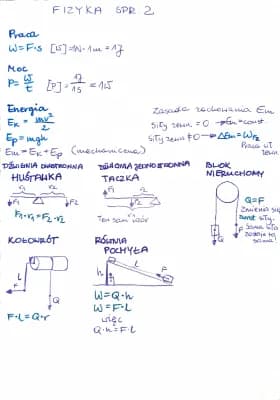 FIZYKA SPR 2
Praca
W=F·s [W]=1N·1m=1J
Moc
P=W/t [P]=1J/1s=1W
Energia
EK=mv²/2
Ep=mgh
Em=EK+Ep (mechaniczna)
Zasada zachowania Em
Siły zewn.=0 → Em=const
Siły zewn≠0 → ΔEm=WFz
Praca sił zewn
DŹWIGNIA DWUSTRONNA
HUŚTAWKA
r1 r2
F1 F2
F1·r1=F2·r2
DŹWIGNIA JEDNOSTRONNA
TACZKA
F1 r1
r2
F2
Ten sam wzór
BLOK
NIERUCHOMY
Q=F
Zmienia się
zwrot siły,
sama siła
zostaje ta
sama!
Q F
KOŁOWRÓT
L
F
Q
F·L=Q·r
RÓWNIA
POCHYŁA
L
h
F
Q
W=Q·h
W=F·L
więc
Q·h=F·L